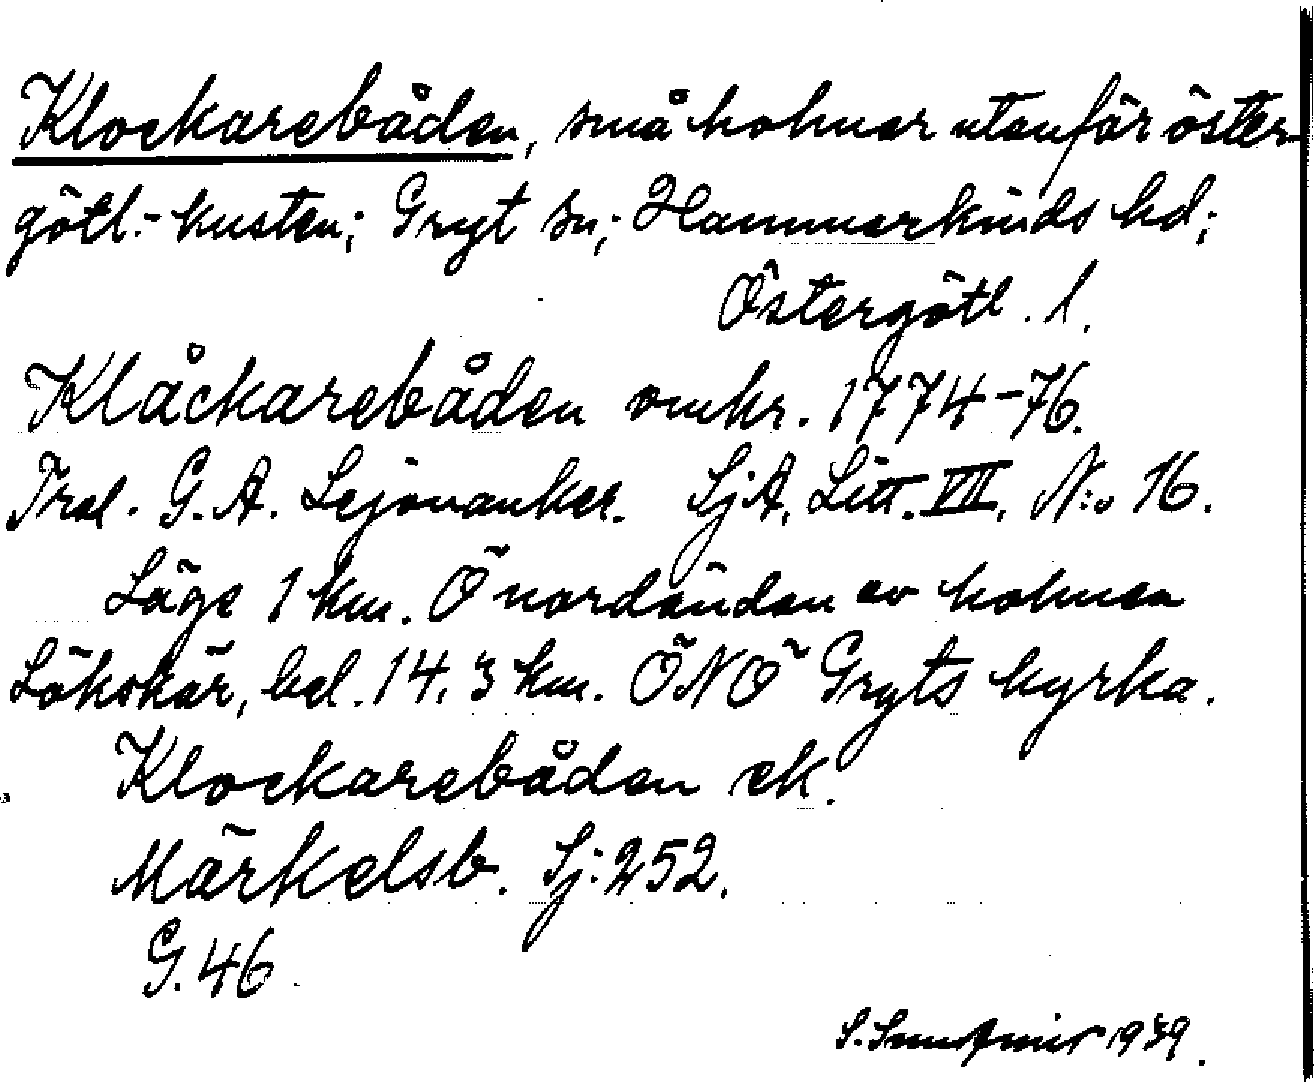 Klockarebåden, små holmar utanför öster-
götl.-kusten; Gryt sn; Hammarkinds hd;
Östergötl. l.
Klåckarebåden omkr. 1774-76.
Trol. G. A. Lejonanker. SjA, Litt. VII, N:o 16.
Läge 1 km. Ö nordändan av holmen
Lökskär, bel. 14,3 km. ÖNÖ Gryts kyrka.
Klockarebåden ek.
Märkelsb. Sj: 252.
G. 46
S. 1939.